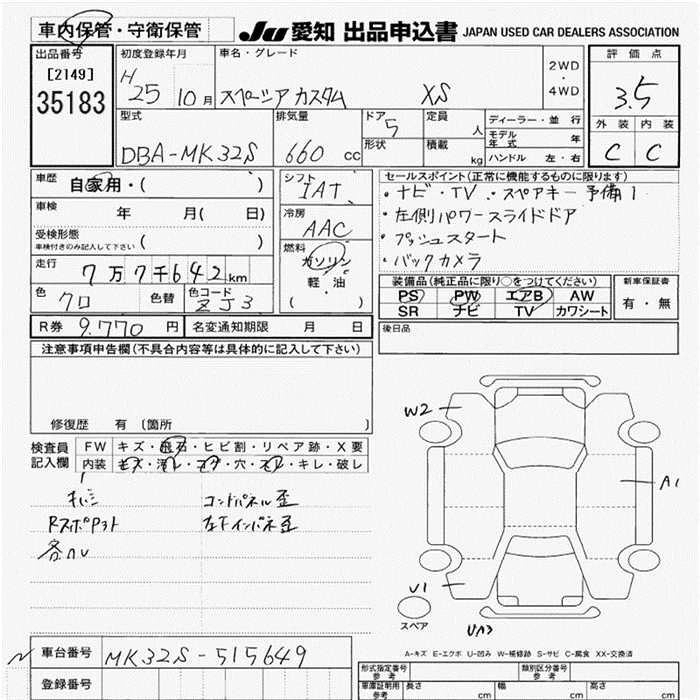 車内保管・守衛保管
Ju 愛知 出品申込書 JAPAN USED CAR DEALERS ASSOCIATION
出品番号
[2149]
35183
初度登録年月
H 25 10月
車名・グレード
スペーシア カスタム XS
2WD・4WD
評価点
3.5
外装 内装
C C
型式
DBA-MK32S
排気量
660 cc
ドア 5
形状
定員 人
積載 kg
ディーラー・並行
モデル年式 年
ハンドル 左・右
車歴
自家用・( )
車検 年 月( 日)
受検形態
車検付きのみ記入して下さい ( )
走行 7万7千642km
色 クロ 色替 色コード ZJ3
R券 9.770 円 名変通知期限 月 日
シフト IAT
冷房 AAC
燃料
ガソリン
軽・油
( )
セールスポイント(正常に機能するものに限ります)
・ナビ・TV ・スペアキー予備1
・左側パワースライドドア
・プッシュスタート
・バックカメラ
装備品(純正品に限り○をつけてください)
PS PW エアB AW
SR ナビ TV カワシート
新車保証書
有・無
後日品
注意事項申告欄(不具合内容等は具体的に記入して下さい)
修復歴 有 〔箇所 〕
検査員記入欄
FW キズ・飛石・ヒビ割・リペア跡・X要
内装 キズ・汚レ・コゲ・穴・スレ・キレ・破レ
コンドパネル歪
左下インパネ歪
W2
A1
U1
UA3
スペア
A-キズ E-エクボ U-凹み W-補修跡 S-サビ C-腐食 XX-交換済
車台番号 MK32S-515649
登録番号
形式指定番号 参考
類別区分番号 参考
車庫証明用 参考 長さ cm 幅 cm 高さ cm